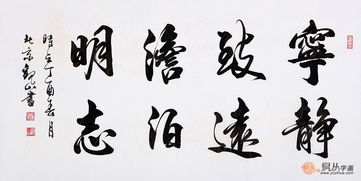 寧靜
致遠
澹泊
明志
時在丁酉春月
京觀山書
易从字画